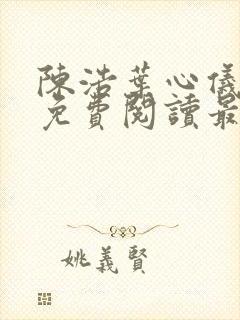 陳浩葉心儀
免費閱讀最
姚義賢